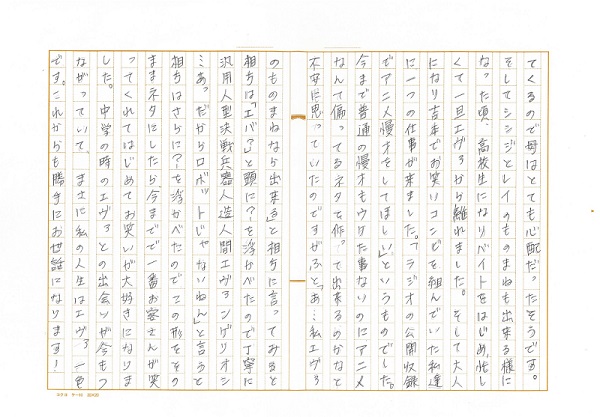 てくるので母はとても心配だったそうです。
そしてシンジとレイのものまねも出来る様に
なった頃、高校生になりバイトをはじめ、忙し
くて一旦エヴァから離れました。そして大人
になり吉本でお笑いコンビを組んでいた私達
に一つの仕事が来ました。「ラジオの公開収録
でアニメ漫才をしてほしい」というものでした。
今まで普通の漫才もウケた事ないのにアニメ
なんて偏ってるネタを作って出来るのかなと
不安に思っていたのですがふと「あ…私エヴァ
のものまねなら出来る」と相方に言ってみると
相方は「エバ？」と頭に？を浮かべたので丁寧に
汎用人型決戦兵器人造人間エヴァンゲリオン
…あっだからロボットじゃないねん」と言うと
相方はさらに？を浮かべたのでこの形をその
ままネタにしたら今までで一番お客さんが笑
ってくれてはじめてお笑いが大好きになりま
した。中学の時のエヴァとの出会いが今もつ
ながっていて、まさに私の人生はエヴァ一色
です。これからも勝手にお世話になります！